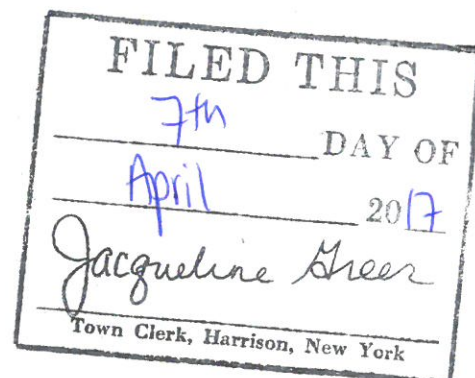 FILED THIS
7th DAY OF
April 2017
Jacqueline Greer
Town Clerk, Harrison, New York